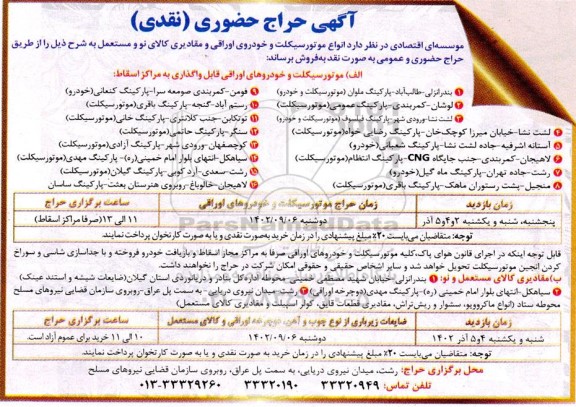 آگهی حراج حضوری (نقدی)
موسسه‌ای اقتصادی در نظر دارد انواع موتورسیکلت و خودروی اوراقی و مقادیری کالای نو و مستعمل به شرح ذیل را از طریق
حراج حضوری و عمومی به صورت نقد به‌فروش برساند:
الف) موتورسیکلت و خودروهای اوراقی قابل واگذاری به مراکز اسقاط:
۱ بندرانزلی-طالب‌آباد-پارکینگ ملوان (موتورسیکلت و خودرو)
۲ لوشان-کمربندی-پارکینگ عمومی(موتورسیکلت)
۳ لشت نشا-ورودی شهر-پارکینگ (موتورسیکلت و خودرو)
۴ لشت نشا-خیابان میرزا کوچک‌خان-پارکینگ رضایی خواه(موتورسیکلت)
۵ آستانه اشرفیه-جاده لشت نشا-پارکینگ شعبانی(خودرو)
۶ لاهیجان-کمربندی-جنب جایگاه CNG-پارکینگ انتظام(موتورسیکلت)
۷ رشت-جاده تهران-پارکینگ ماه گیل(خودرو)
۸ منجیل-پشت رستوران ماهک-پارکینگ باقری(موتورسیکلت)
۹ فومن-کمربندی صومعه سرا-پارکینگ کنعانی(خودرو)
۱۰ رستم آباد-گنجه-پارکینگ باقری(موتورسیکلت)
۱۱ توتکابن-جنب کلانتری-پارکینگ خانی(موتورسیکلت)
۱۲ سنگر-پارکینگ حاتمی(موتورسیکلت)
۱۳ کوچصفهان-ورودی شهر-پارکینگ آزادی(موتورسیکلت)
۱۴ سیاهکل-انتهای بلوار امام خمینی(ره)-پارکینگ مهدی(موتورسیکلت)
۱۵ رشت-سعدی-آرد کوبی-پارکینگ گیلان(موتورسیکلت)
۱۶ لاهیجان-خالوباغ-روبروی هنرستان بعثت-پارکینگ ساسان
زمان بازدید
زمان حراج موتورسیکلت و خودروهای اوراقی
ساعت برگزاری حراج
پنجشنبه، شنبه و یکشنبه ۲و۴و۵ آذر
دوشنبه ۱۴۰۲/۰۹/۰۶
۱۱ الی ۱۳(صرفا مراکز اسقاط)
توجه: متقاضیان می‌بایست ۲۰٪ مبلغ پیشنهادی را در زمان خرید به‌صورت نقدی و یا به صورت کارتخوان پرداخت نمایند.
قابل توجه اینکه در اجرای قانون هوای پاک،کلیه موتورسیکلت و خودروهای اوراقی صرفا به مراکز مجاز اسقاط و بازیافت خودرو فروخته و با جداسازی شاسی و سوراخ
کردن انجین موتورسیکلت تحویل خواهد شد و سایر اشخاص حقیقی و حقوقی امکان شرکت در حراج را نخواهند داشت.
ب)مقادیری کالای مستعمل و نو: ۱ بندرانزلی- خیابان شهید مصطفی خمینی- محوطه اداره کل بنادر و دریانوردی استان گیلان(ضایعات شیشه و استند عینک)
۲ سیاهکل-انتهای بلوار امام خمینی (ره)-پارکینگ مهدی(دوچرخه اوراقی) ۳ رشت- میدان نیروی دریایی- به سمت پل عراق-روبروی سازمان قضایی نیروهای مسلح
محوطه ستاد (انواع ماکروویو، سشوار و ریش‌تراش، مقادیری قطعات قایق، کولر اسپلیت و مقادیری کالای مستعمل)
زمان بازدید
ضایعات زیرباری از نوع چوب و آهن، دوچرخه اوراقی و کالای مستعمل
ساعت برگزاری حراج
شنبه و یکشنبه ۴و۵ آذر ۱۴۰۲
دوشنبه ۱۴۰۲/۰۹/۰۶
۱۰ الی ۱۱ خرید برای عموم آزاد است.
توجه: متقاضیان می‌بایست ۲۰٪ مبلغ پیشنهادی را در زمان خرید به صورت نقدی و یا به صورت کارتخوان پرداخت نمایند.
محل برگزاری حراج: رشت، میدان نیروی دریایی، به سمت پل عراق، روبروی سازمان قضایی نیروهای مسلح
تلفن تماس: ۳۳۳۲۰۹۴۹ ۳۳۳۲۰۱۹۰ ۰۱۳-۳۳۳۲۹۲۶۰